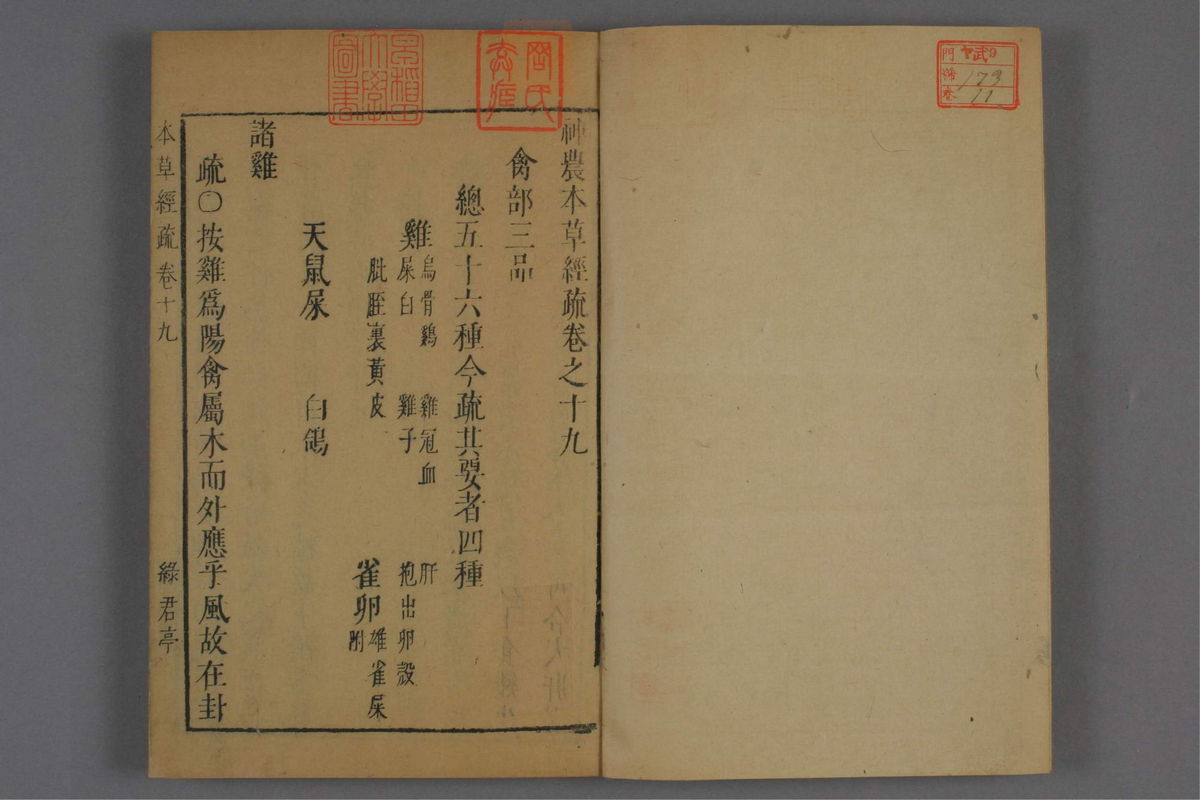 神農本草經疏卷之十九
禽部三品
總五十六種今疏其要者四種
雞 烏骨鷄 雞冠血 肝
屎白 雞子 抱出卵殼
肶胵裏黃皮
雀卵 雄雀屎
附
天鼠屎 白鴿
諸雞
疏〇按雞爲陽禽屬木而外應乎風故在卦
本草經疏 卷十九 綠君亭
早稻田大學圖書
門 ヤ9
號 173
卷 11